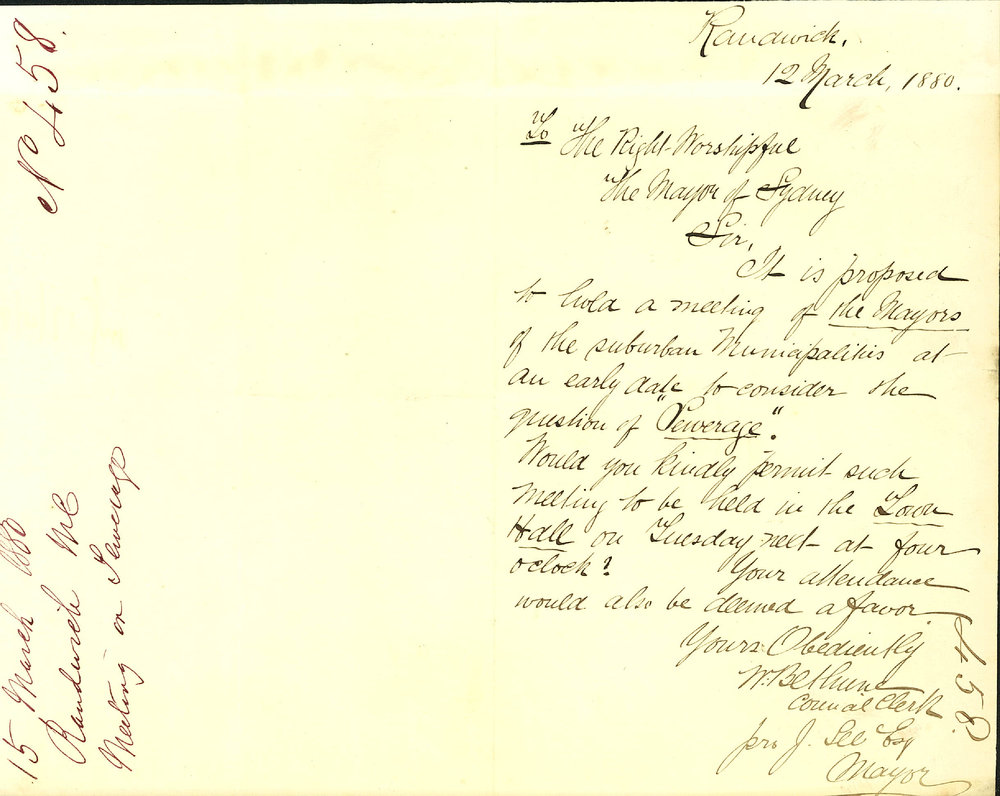 No 458.
15 March 1880
Randwick MC
Meeting on Sewerage
Randwick.
12 March, 1880.
To The Right Worshipful
The Mayor of Sydney
Sir,
It is proposed
to hold a meeting of the Mayors
of the suburban Municipalities at
an early date to consider the
question of "Sewerage".
Would you kindly permit such
meeting to be held in the Town
Hall on Tuesday next at four
oclock? Your attendance
would also be deemed a favor
Yours Obediently
Wm Bethune
Council Clerk
pro J. See Esq
Mayor
458.